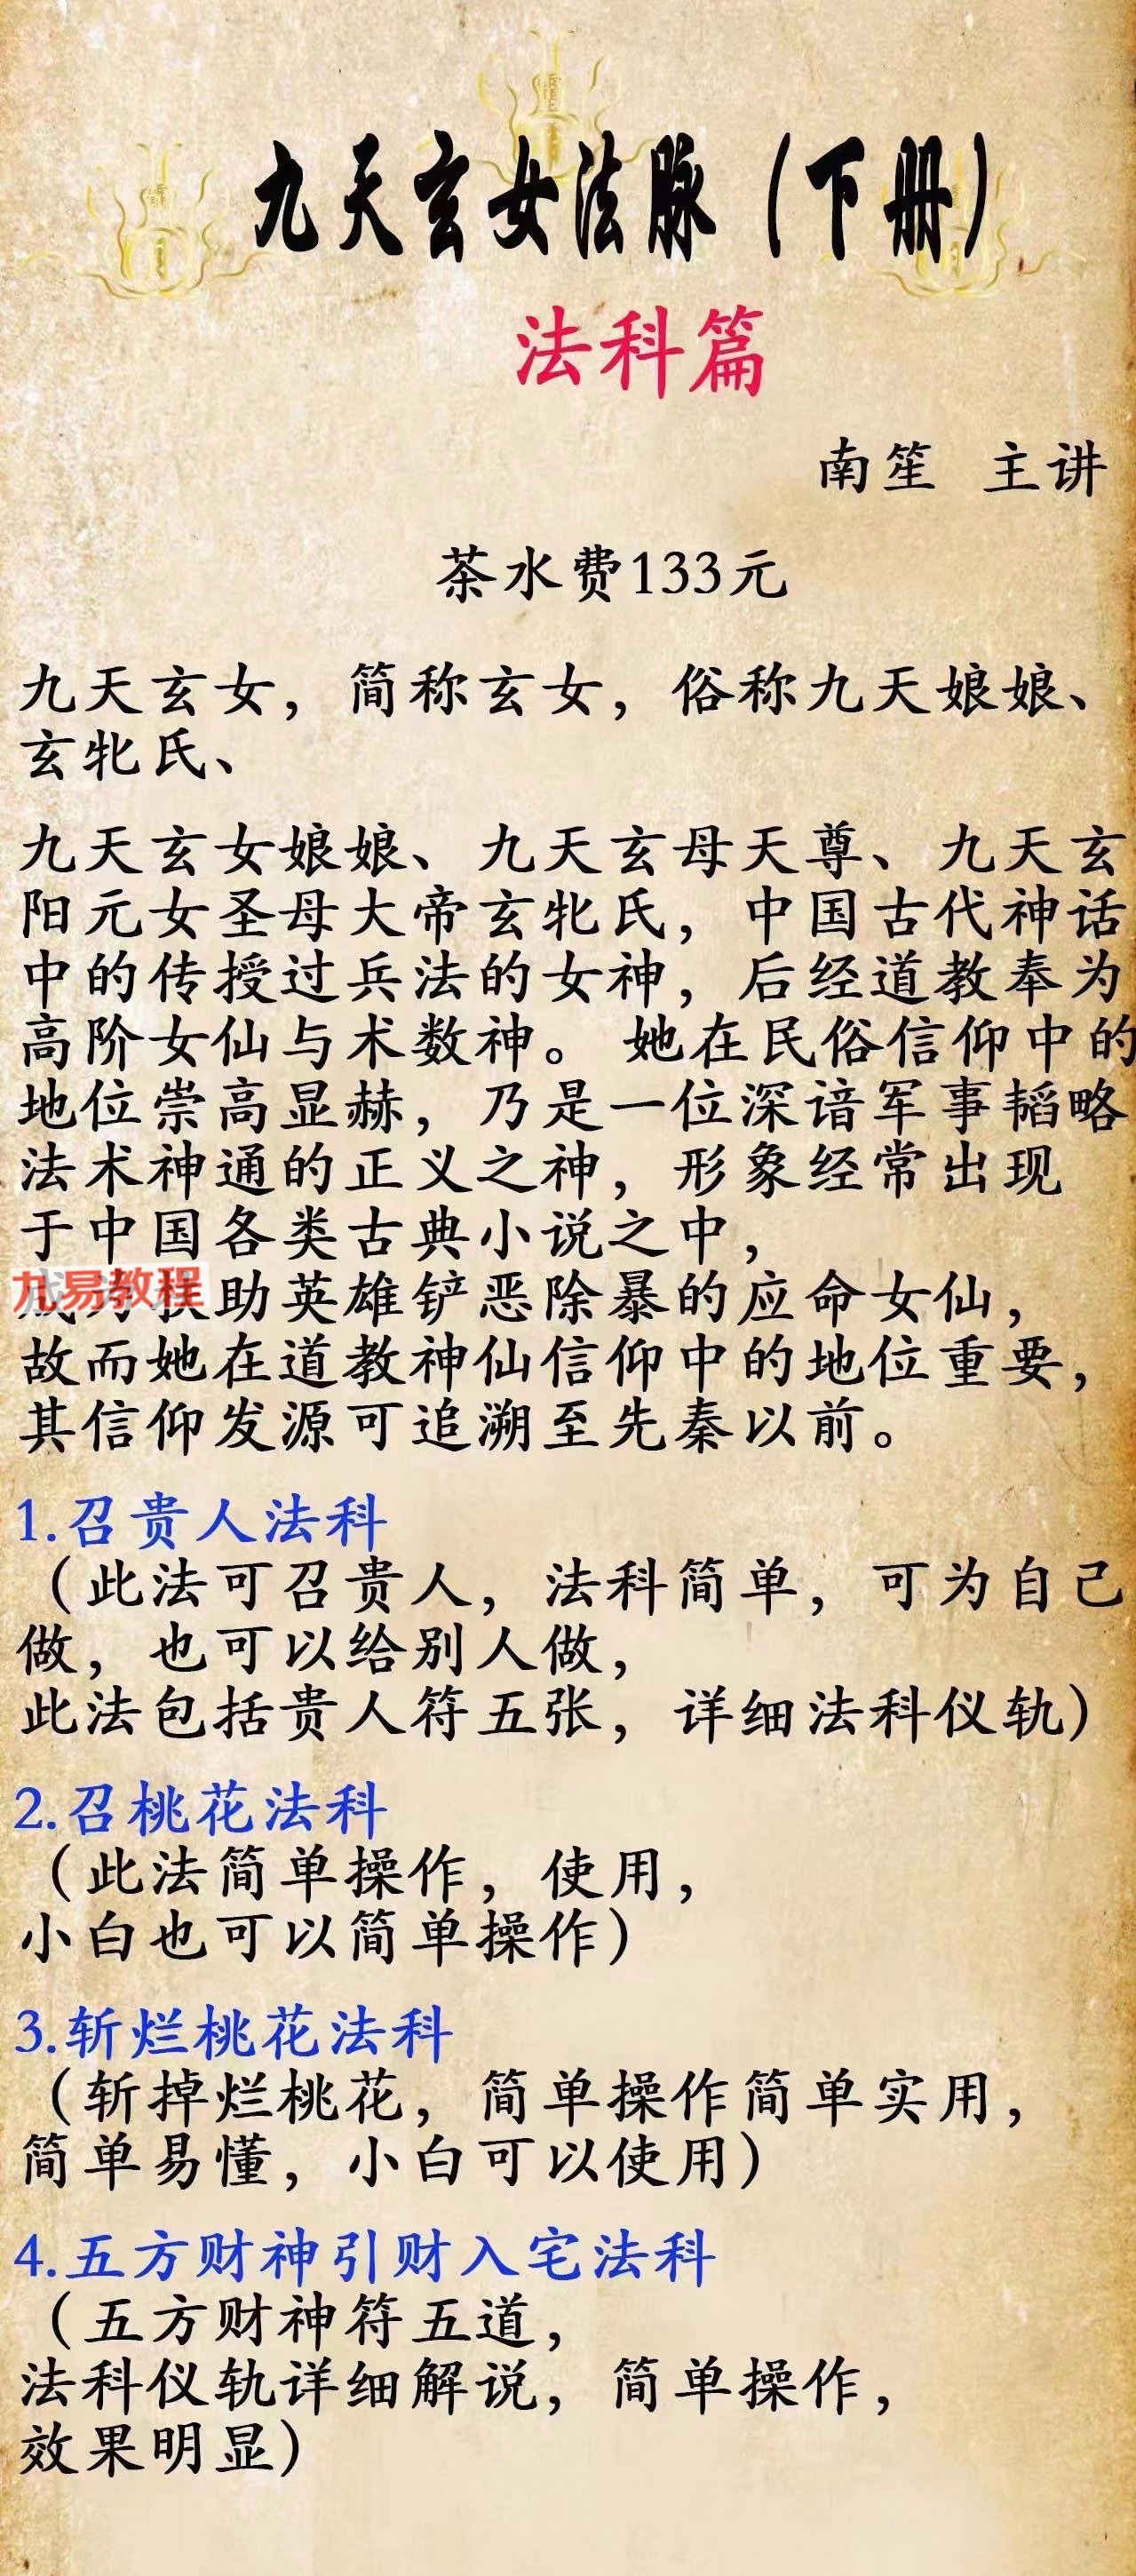 九天玄女法脉（下册）
法科篇
南笙 主讲
茶水费133元
九天玄女，简称玄女，俗称九天娘娘、
玄牝氏、
九天玄女娘娘、九天玄母天尊、九天玄
阳元女圣母大帝玄牝氏，中国古代神话
中的传授过兵法的女神，后经道教奉为
高阶女仙与术数神。她在民俗信仰中的
地位崇高显赫，乃是一位深谙军事韬略
法术神通的正义之神，形象经常出现
于中国各类古典小说之中，
九易教程
助英雄铲恶除暴的应命女仙，
故而她在道教神仙信仰中的地位重要，
其信仰发源可追溯至先秦以前。
1.召贵人法科
（此法可召贵人，法科简单，可为自己
做，也可以给别人做，
此法包括贵人符五张，详细法科仪轨）
2.召桃花法科
（此法简单操作，使用，
小白也可以简单操作）
3.斩烂桃花法科
（斩掉烂桃花，简单操作简单实用，
简单易懂，小白可以使用）
4.五方财神引财入宅法科
（五方财神符五道，
法科仪轨详细解说，简单操作，
效果明显）